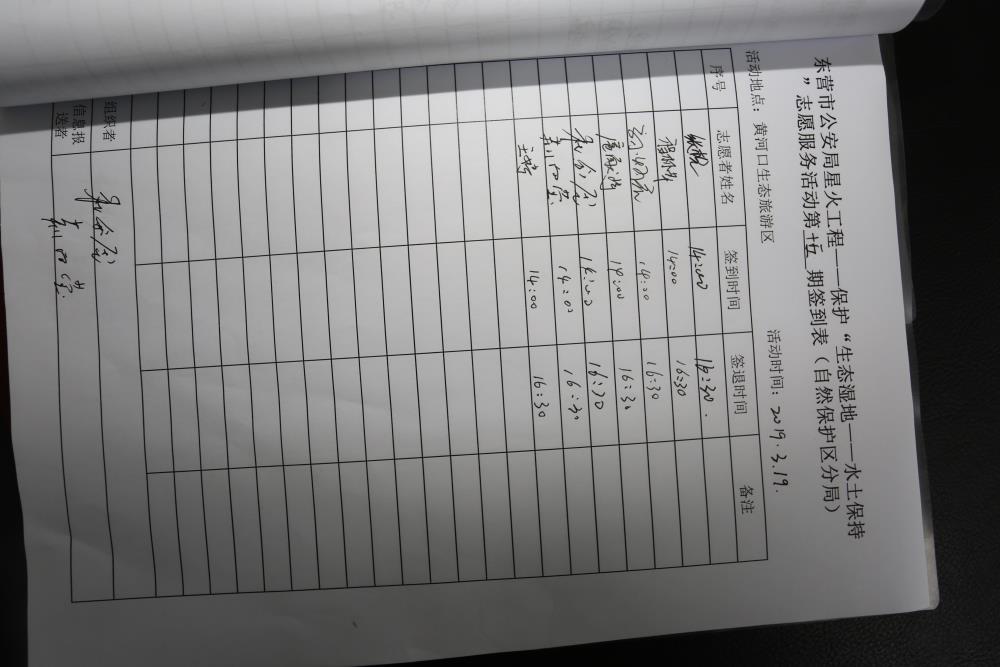 东营市公安局星火工程——保护“生态湿地——水土保持
”志愿服务活动第十五期签到表（自然保护区分局）
活动地点：黄河口生态旅游区 活动时间：2019.3.19.
序号 志愿者姓名 签到时间 签退时间 备注
14:00 16:30.
14:00 16:30
14:00 16:30
14:00 16:30
14:00 16:30
14:00 16:30
14:00 16:30
组织者
信息报
送者